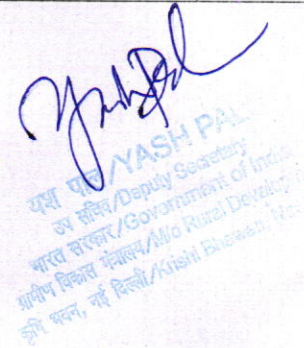 यश पाल/YASH PAL
उप सचिव/Deputy Secretary
भारत सरकार/Government of India
ग्रामीण विकास मंत्रालय/M/o Rural Develop
कृषि भवन, नई दिल्ली/Krishi Bhawan,